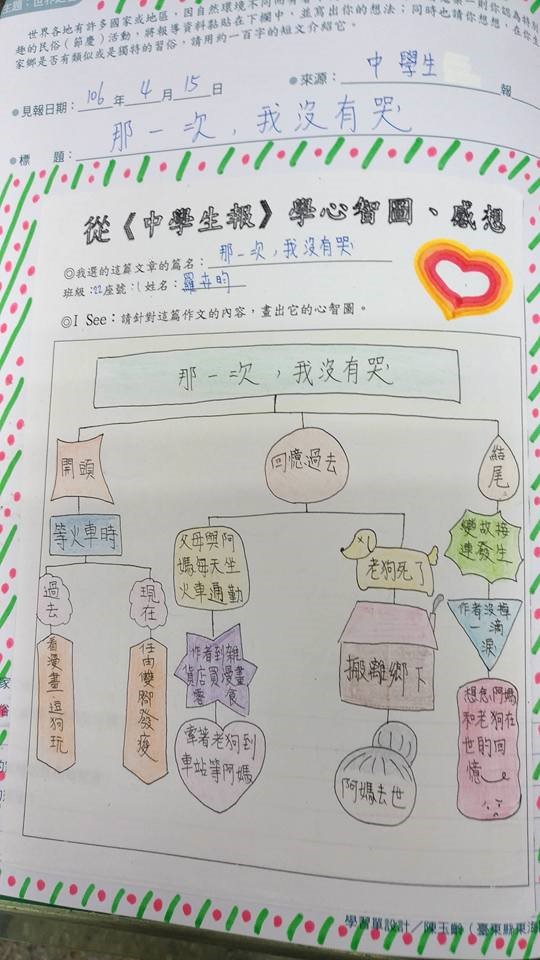 世界各地有許多國家或地區，因自然環境不同而有
趣的民俗（節慶）活動，將報導資料黏貼在下欄中，並寫出你的想法；同時也請你想想，在你生
家鄉是否有類似或是獨特的習俗，請用約一百字的短文介紹它。
●見報日期：106年4月15日
●來源：中學生報
●標　題：那一次，我沒有哭
從《中學生報》學心智圖、感想
◎我選的這篇文章的篇名：那一次，我沒有哭
班級：22座號：1姓名：羅卉昀
◎I See：請針對這篇作文的內容，畫出它的心智圖。
那一次，我沒有哭
開頭
等火車時
過去
看漫畫、逗狗玩
現在
任由雙腳發痠
回憶過去
父母與阿
媽每天坐
火車通勤
作者到雜
貨店買漫畫
零食
牽著老狗到
車站等阿媽
老狗死了
搬離鄉下
阿媽去世
結
尾
變故接
連發生
作者沒掉
一滴
淚
想念阿媽
和老狗在
世的回
憶
學習單設計／陳玉齡（臺東縣東海